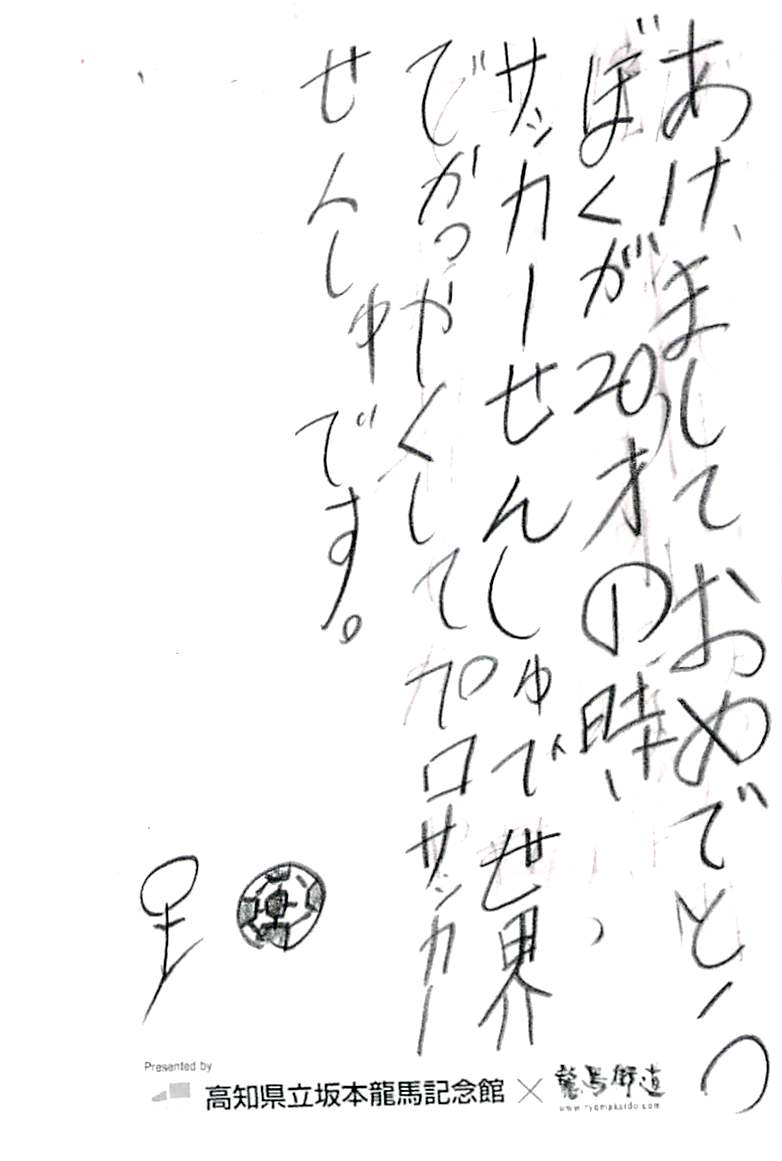 あけましておめでとう
ぼくが20才の時、
サッカーせんしゅで世界
でかつやくしてプロサッカー
せんしゅです。
Presented by
高知県立坂本龍馬記念館×龍馬街道
www.ryomakaido.com